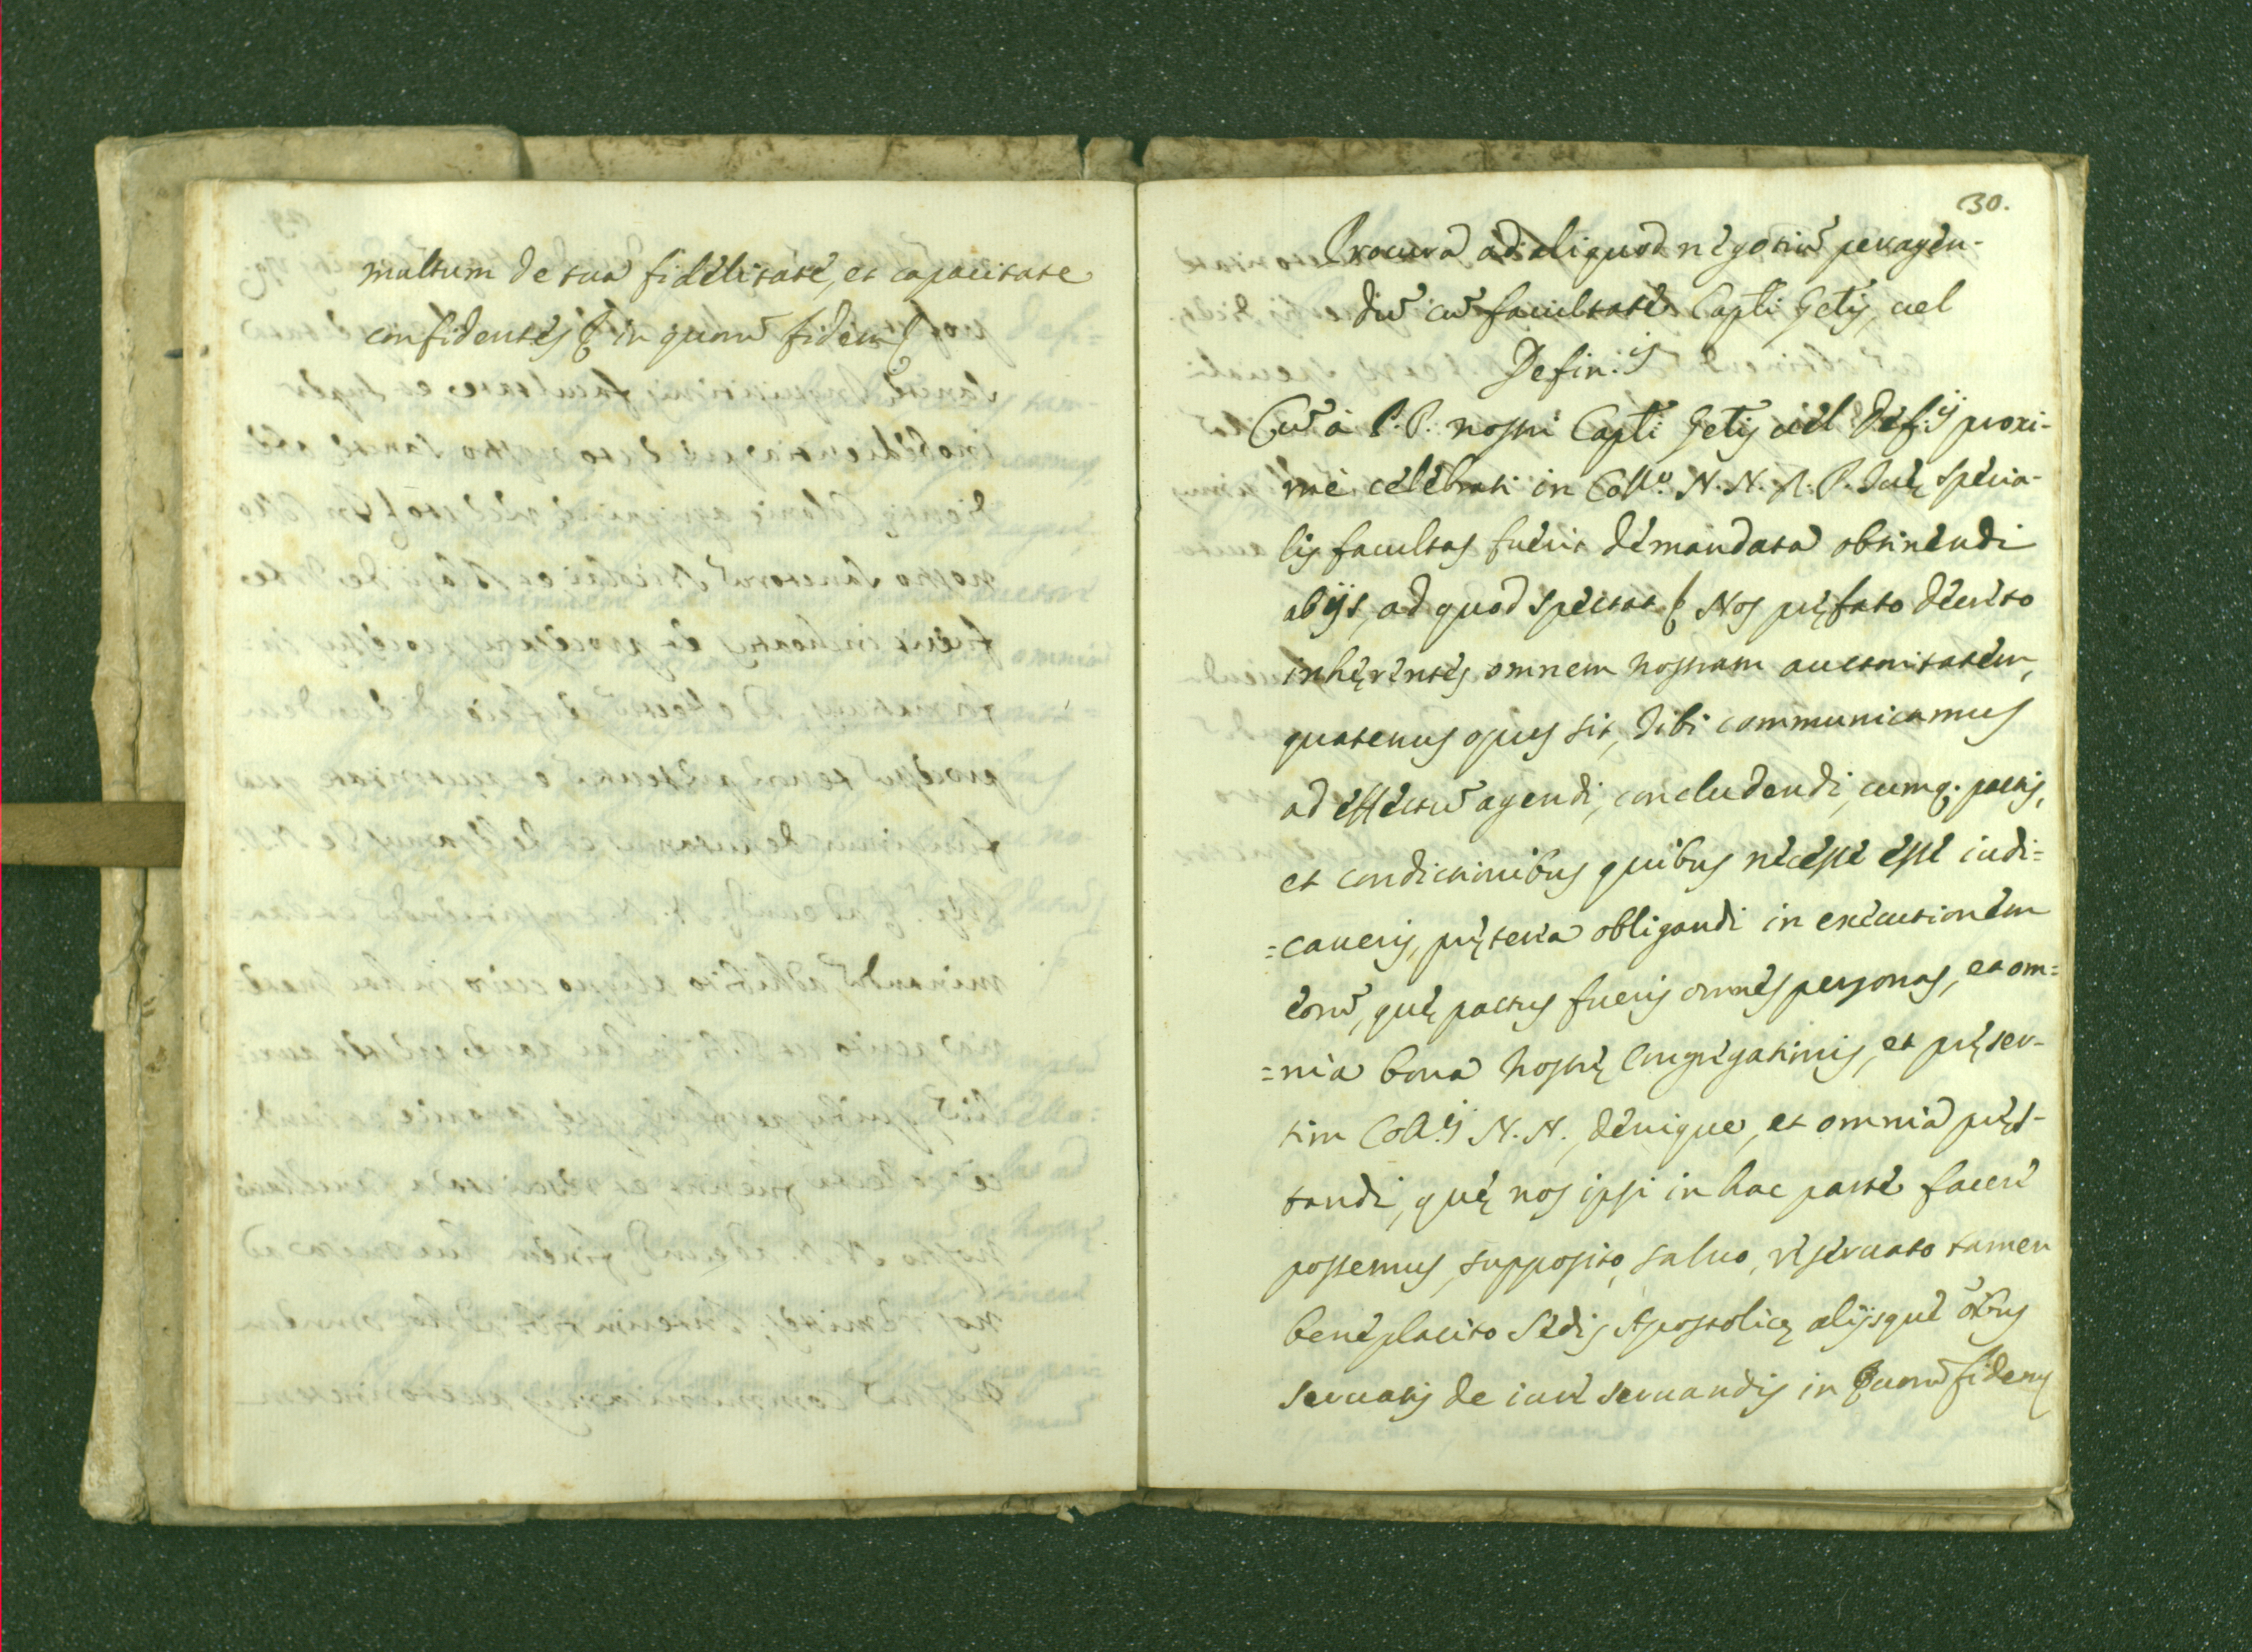 multum de tua fidelitate, et capacitate
confidentes & in quorũ fidem
30.
Procura ad aliquod negotiũ peragen-
dũ cũ facultate Capli Gẽlis, uel
Defin:ij
Cũ à P.P. nostri Capli Gẽlis uel Def:ij proxi-
mè celebrati in Collº. N. N. A. P. Tuę specia-
lis facultas fuerit demandata obtinendi
ab ijs, ad quod spectat & Nos pręfato decreto
inhęrentes omnem nostram auctoritatem,
quatenus opus sit, tibi communicamus
ad effectũ agendi, concludendi, cumq. pactis,
et condictionibus quibus necesse esse iudi=
=caueris, pręterea obligandi in executionem
eorũ, quę pactus fueris omnes personas, et om=
=nia bona nostrę Congregationis, et pręser-
tim Coll.ij N. N., denique, et omnia pręs-
tandi, quę nos ipsi in hac parte facere
possemus, supposito, saluo, reseruato tamen
beneplacito Sedis Apostolicę alijsque õibus
seruatis de iure seruandis in Quorũ fidem